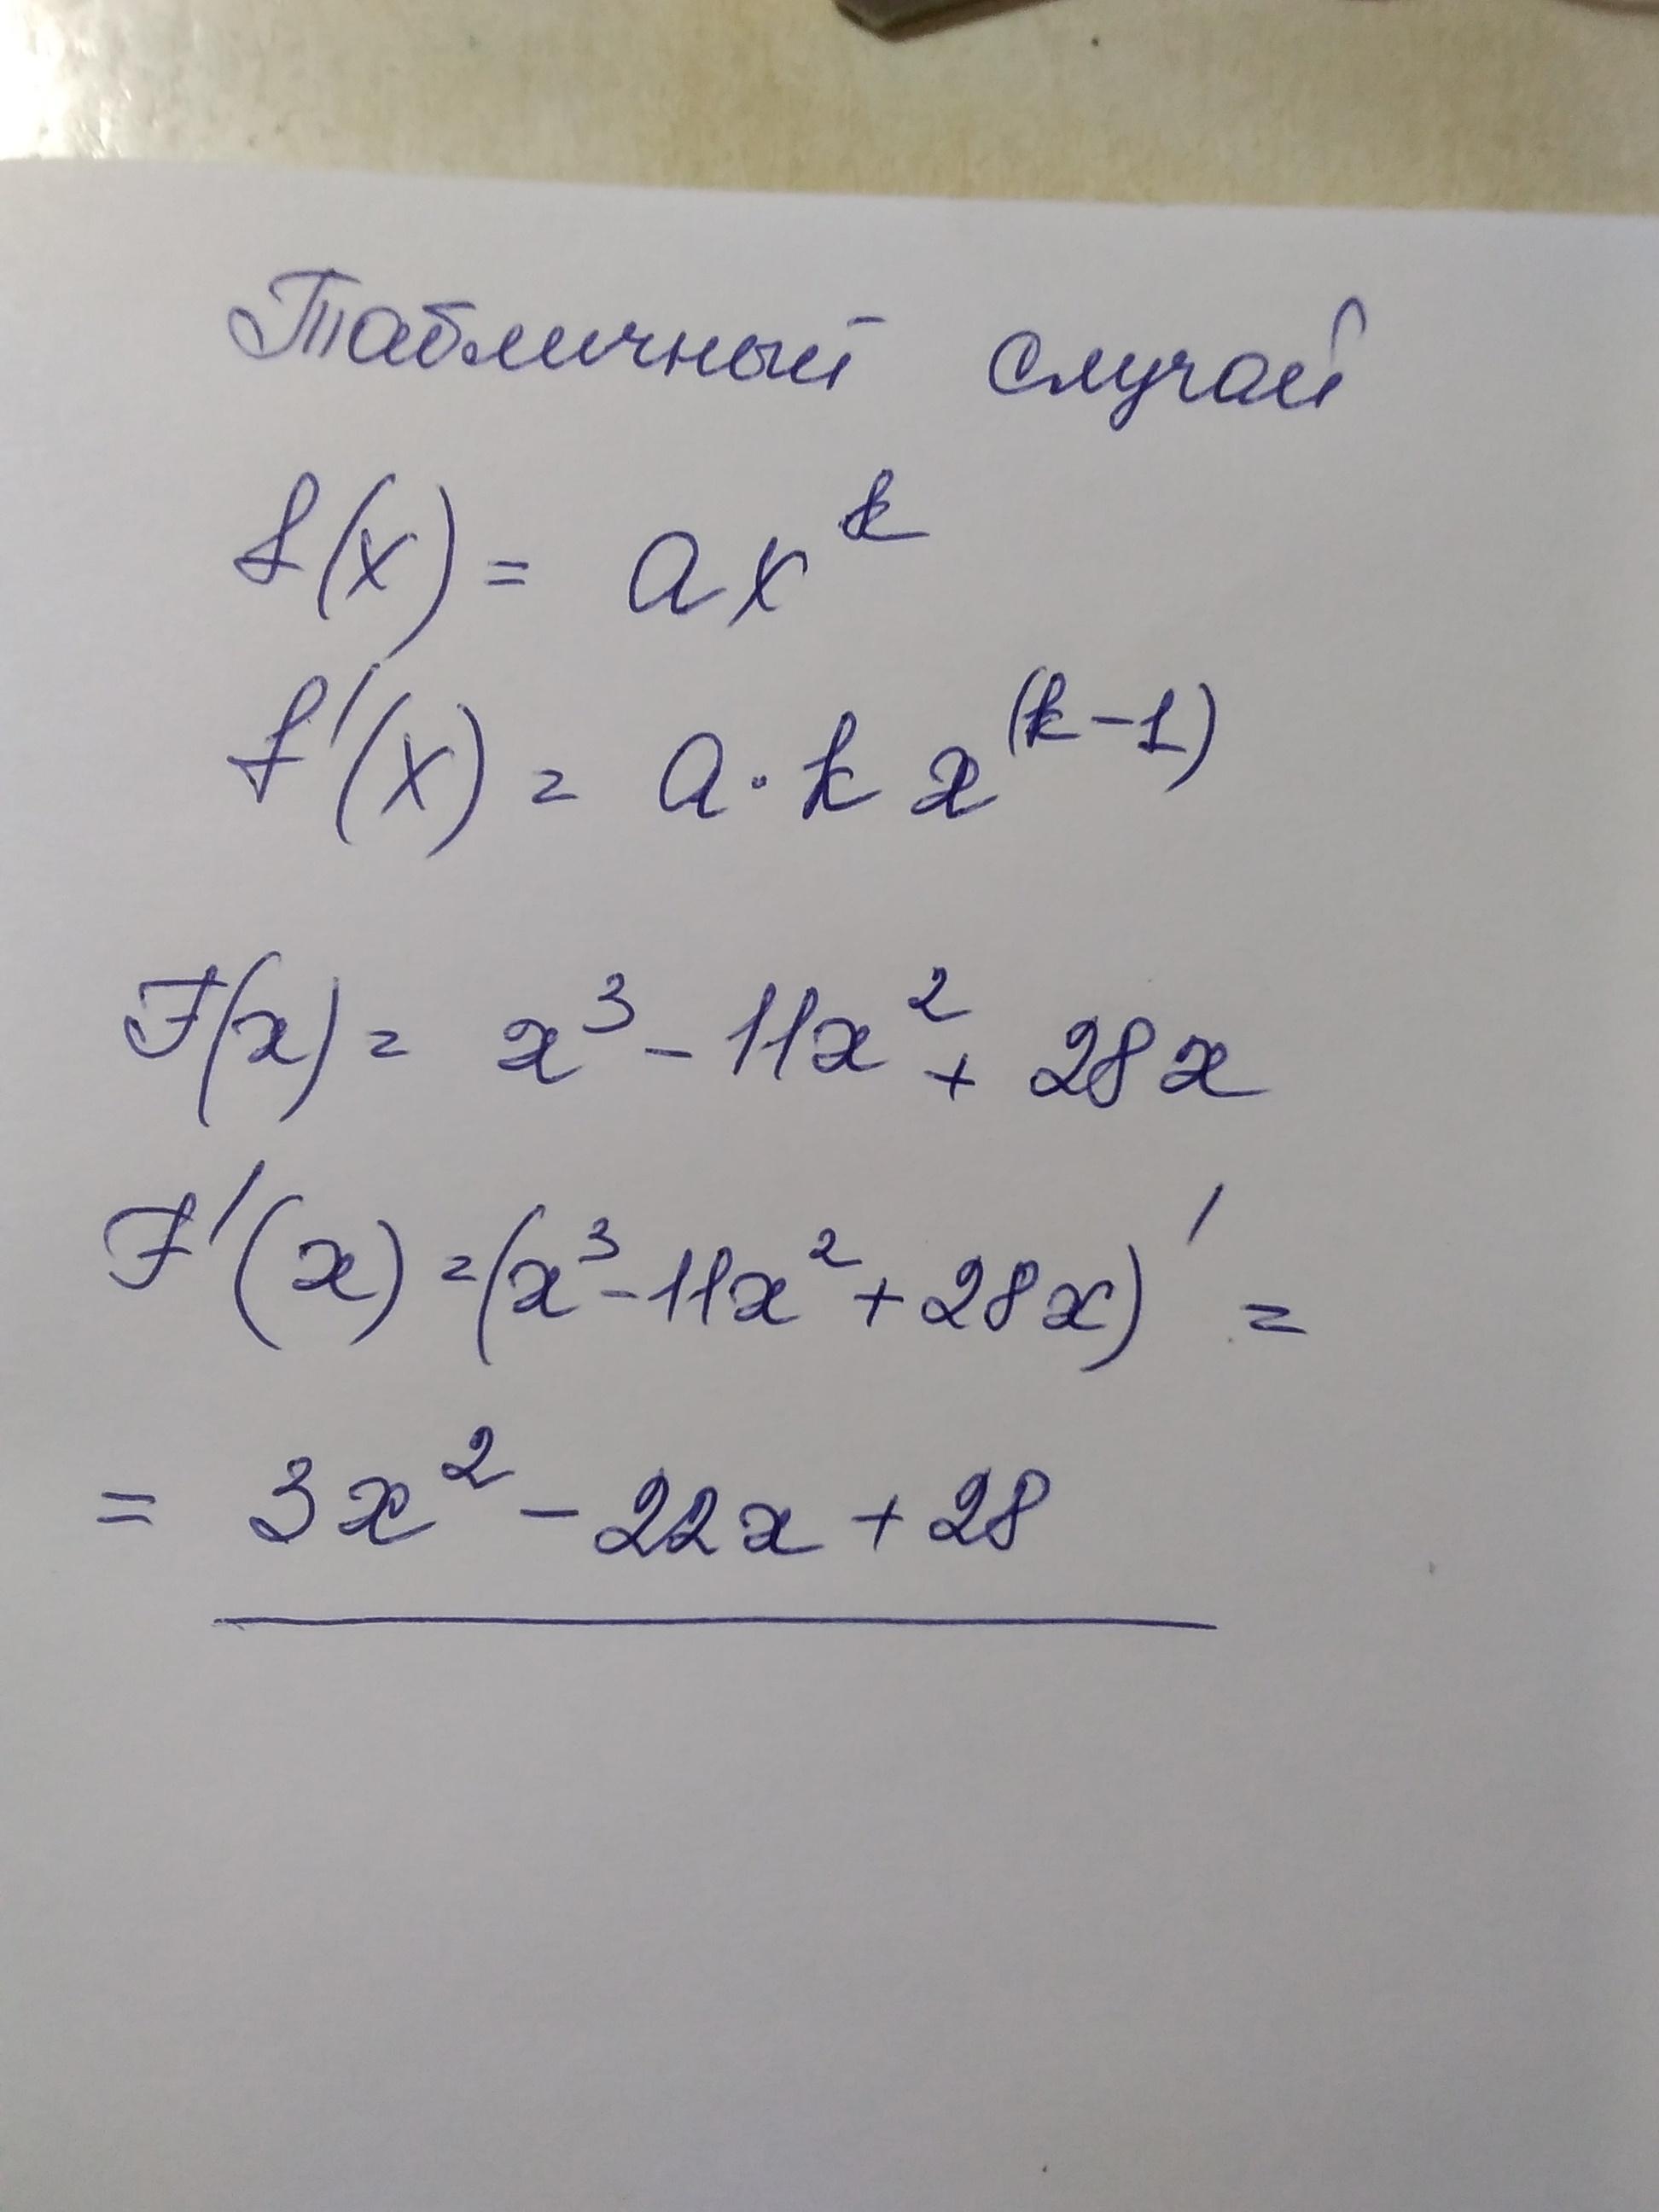 Табличный случай
f(x) = ax^k
f'(x) = a·k x^(k-1)
F(x) = x³ - 11x² + 28x
F'(x) = (x³ - 11x² + 28x)' =
= 3x² - 22x + 28